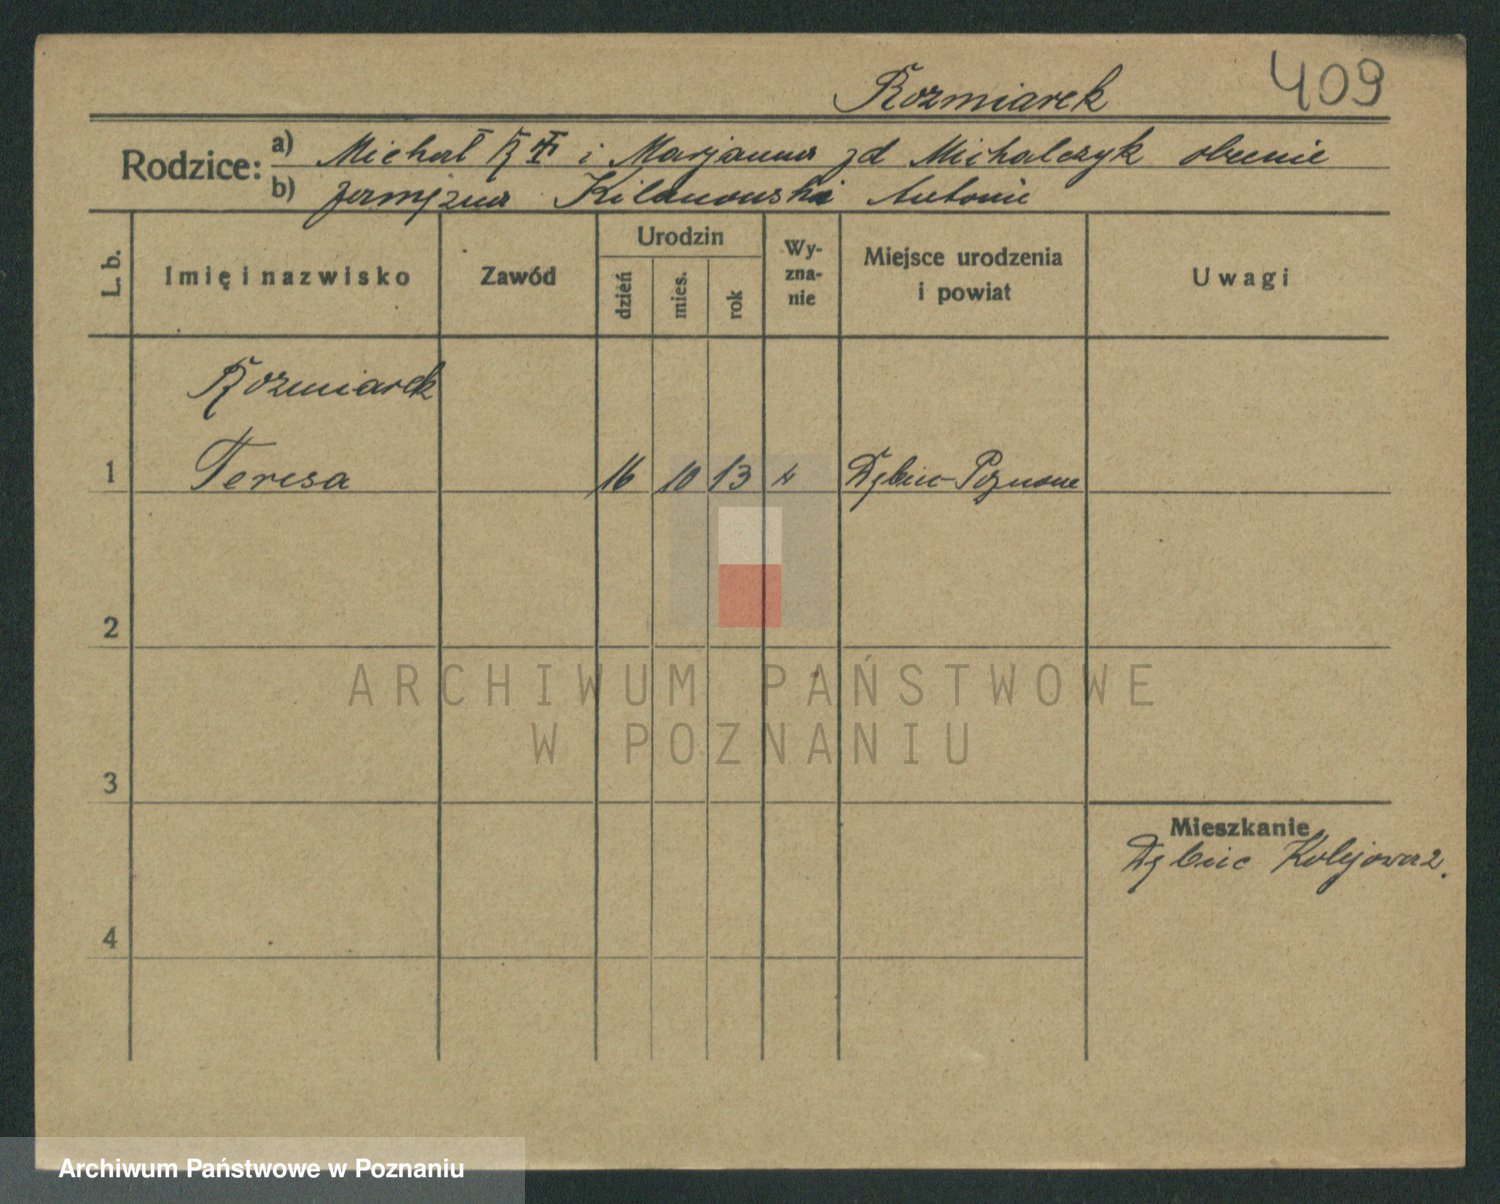 409
Rozmiarek
Rodzice: a) Michał R i Marjanna zd Michalczyk obecnie
b) zamężna Kilanowski Antoni
L. b.
Imię i nazwisko
Zawód
Urodzin
dzień
mies.
rok
Wy-
zna-
nie
Miejsce urodzenia
i powiat
Uwagi
Rozmiarek
1 Teresa 16 10 13 Dębiec-Poznań
2
3
4
Mieszkanie
Dębiec Kolejowa 2.
ARCHIWUM PAŃSTWOWE
W POZNANIU
Archiwum Państwowe w Poznaniu